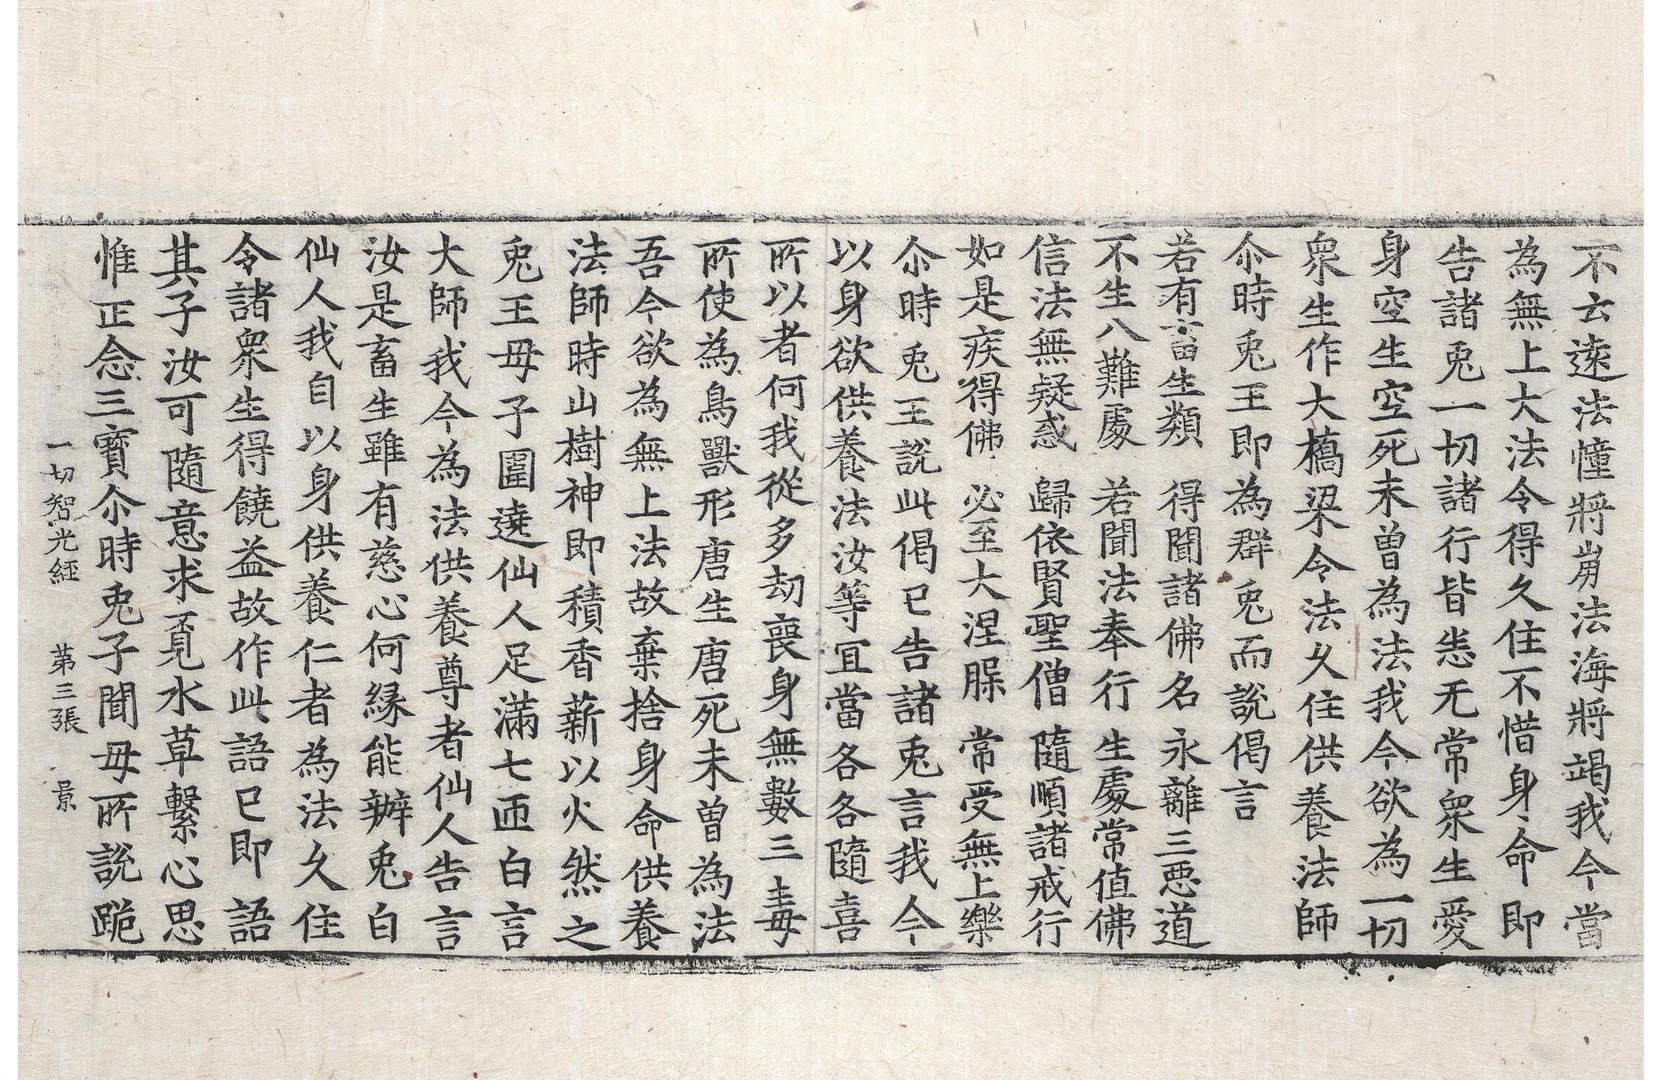 不去遠法幢將崩法海將竭我今當
為無上大法令得久住不惜身命即
告諸兎一切諸行皆悉无常衆生愛
身空生空死未曽為法我今欲為一切
衆生作大橋梁令法久住供養法師
尒時兎王即為群兎而說偈言
若有畜生類 得聞諸佛名 永離三惡道
不生八難處 若聞法奉行 生處常值佛
信法無疑惑 歸依賢聖僧 隨順諸戒行
如是疾得佛 必至大涅槃 常受無上樂
尒時兎王說此偈已告諸兎言我今
以身欲供養法汝等宜當各各隨喜
所以者何我從多劫喪身無數三毒
所使為鳥獸形唐生唐死未曽為法
吾今欲為無上法故棄捨身命供養
法師時山樹神即積香薪以火然之
兎王母子圍遶仙人足滿七匝白言
大師我今為法供養尊者仙人告言
汝是畜生雖有慈心何緣能辦兎白
仙人我自以身供養仁者為法久住
令諸衆生得饒益故作此語已即語
其子汝可隨意求覓水草繫心思
惟正念三寶尒時兎子聞母所說跪
一切智光經 第三張 景